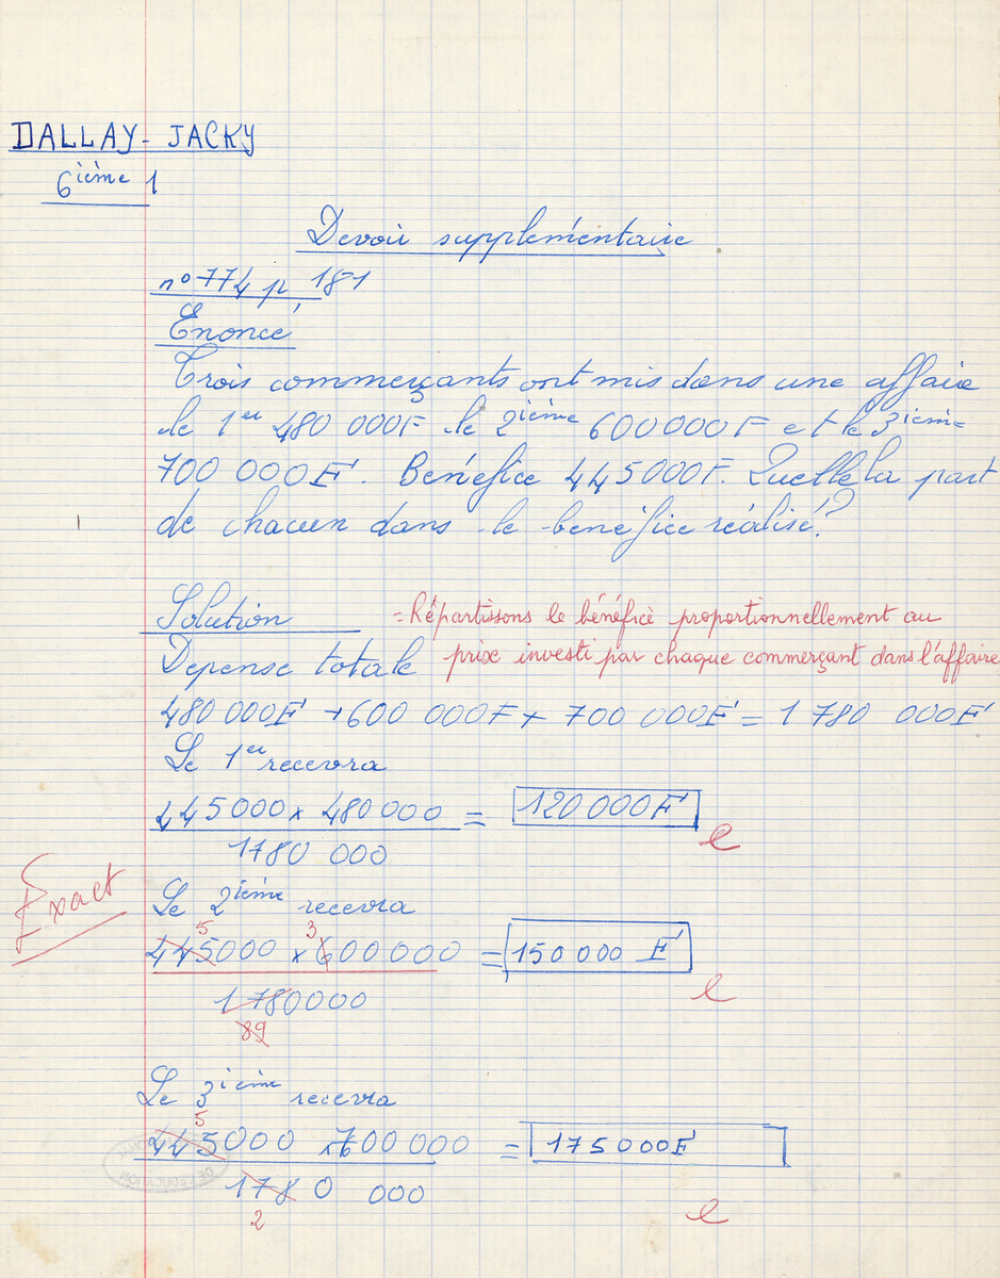 DALLAY - JACKY
6ième 1
Devoir supplémentaire
n° 774 p 181
Enoncé
Trois commerçants ont mis dans une affaire
le 1er 480 000F le 2ième 600000F et le 3ième
700 000F. Bénéfice 445000F. Quelle la part
de chacun dans le bénéfice réalisé?
Solution
= Répartissons le bénéfice proportionnellement au
prix investi par chaque commerçant dans l'affaire
Depense totale
480 000F + 600 000F + 700 000F = 1 780 000F
Le 1er recevra
445000 x 480000 = 120 000F
1780 000
e
Exact
Le 2ième recevra
5 3
445000 x 600000 = 150 000 F
1780000
89
e
Le 3ième recevra
5
445000 x 700 000 = 175000F
1780 000
2
e
DE L'EDUCATION